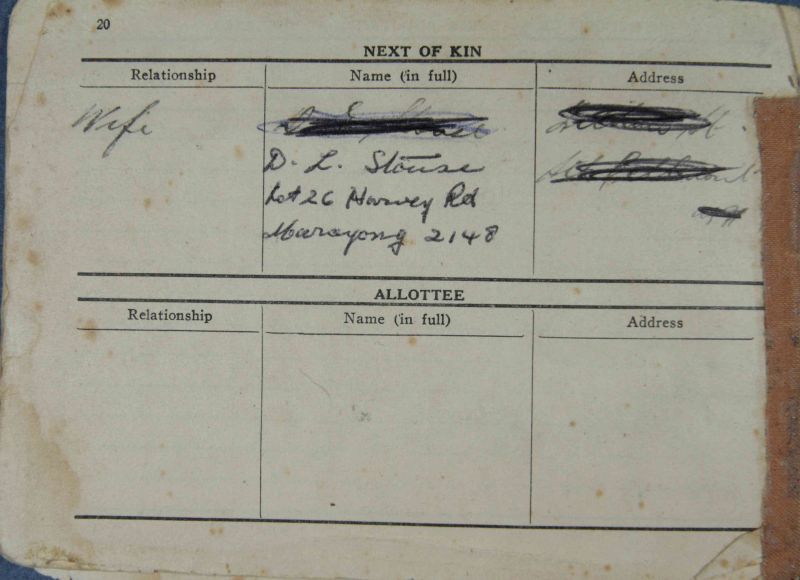 20
NEXT OF KIN
Relationship Name (in full) Address
Wife
D. L. Stouse
Lot 26 Harvey Rd
Marayong 2148
ALLOTTEE
Relationship Name (in full) Address